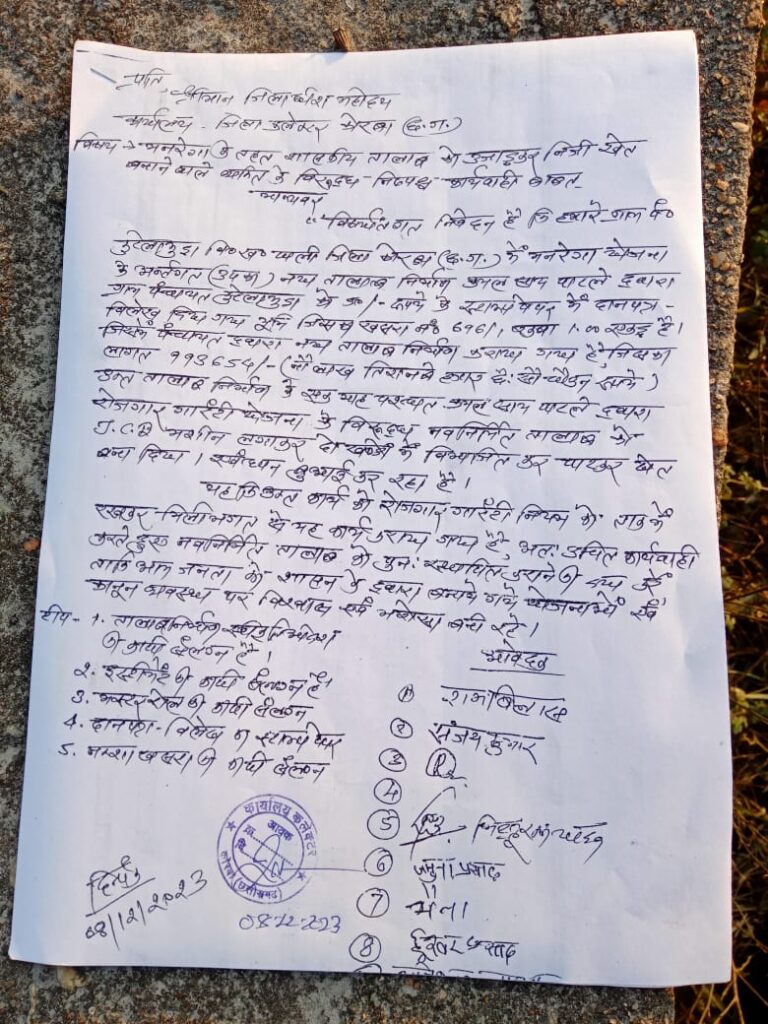 प्रति,
श्रीमान जिलाधीश महोदय
कार्यालय - जिला कलेक्टर कोरबा (छ.ग.)
विषय → मनरेगा के तहत शासकीय तालाब को उजाड़कर निजी खेत
बनाने वाले व्यक्ति के विरूद्ध निष्पक्ष कार्यवाही बाबत्
मान्यवर
विषयांतर्गत निवेदन है कि हमारे ग्राम पं०
कुटेलामुडा वि०ख० पाली जिला कोरबा (छ.ग.) में मनरेगा योजना
के अन्तर्गत नया तालाब निर्माण कमल साय पाटले द्वारा
ग्राम पंचायत कुटेलामुडा को 50/- रूपये के स्टाम्प पेपर में दानपत्र -
विलेख किया गया भूमि जिसका खसरा नं० 696/1, रकबा 1.00 एकड़ है।
जिसमें पंचायत द्वारा नया तालाब निर्माण कराया गया है, जिसका
लागत 993654/- (नौ लाख तिरानबे हजार छः सौ चौवन रूपये)
उक्त तालाब निर्माण के कमल साय पाटले द्वारा
रोजगार गारंटी योजना के विरूद्ध नवनिर्मित तालाब को
J.C.B मशीन लगाकर दो खण्डों में विभाजित कर पाटकर खेत
बना दिया। कर रहा है।
यह कि उक्त कार्य को रोजगार गारंटी नियम को ताक में
रखकर मिलीभगत से यह कार्य कराया गया है, अतः उचित कार्यवाही
करते हुए नवनिर्मित तालाब को पुनः स्थापित कराने की करें
ताकि आम जनता को शासन के द्वारा बनाये गये योजनाओं एवं
कानून व्यवस्था पर विश्वास एवं भरोसा बनी रहे।
टीप- 1. तालाब निर्माण स्वीकृति आदेश
की कापी संलग्न है।
2. इस्टीमेट की कापी संलग्न है।
3. मस्टर रोल की कापी संलग्न
4. दानपत्र - विलेख का स्टाम्प पेपर
5. नक्शा खसरा की कापी संलग्न
आवेदक
1 रामबिलास
2 संजय कुमार
3
4
5
6 जमुना प्रसाद
7 मैना
8 प्रसाद
कार्यालय कलेक्टर
आवक
कोरबा (छत्तीसगढ़)
दिनाँक
08/12/2023
08-12-2023